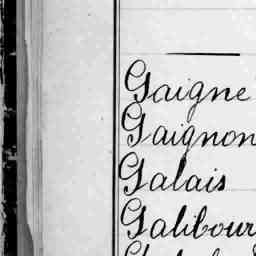 Gaigne
Gaignon
Galais
Galibour